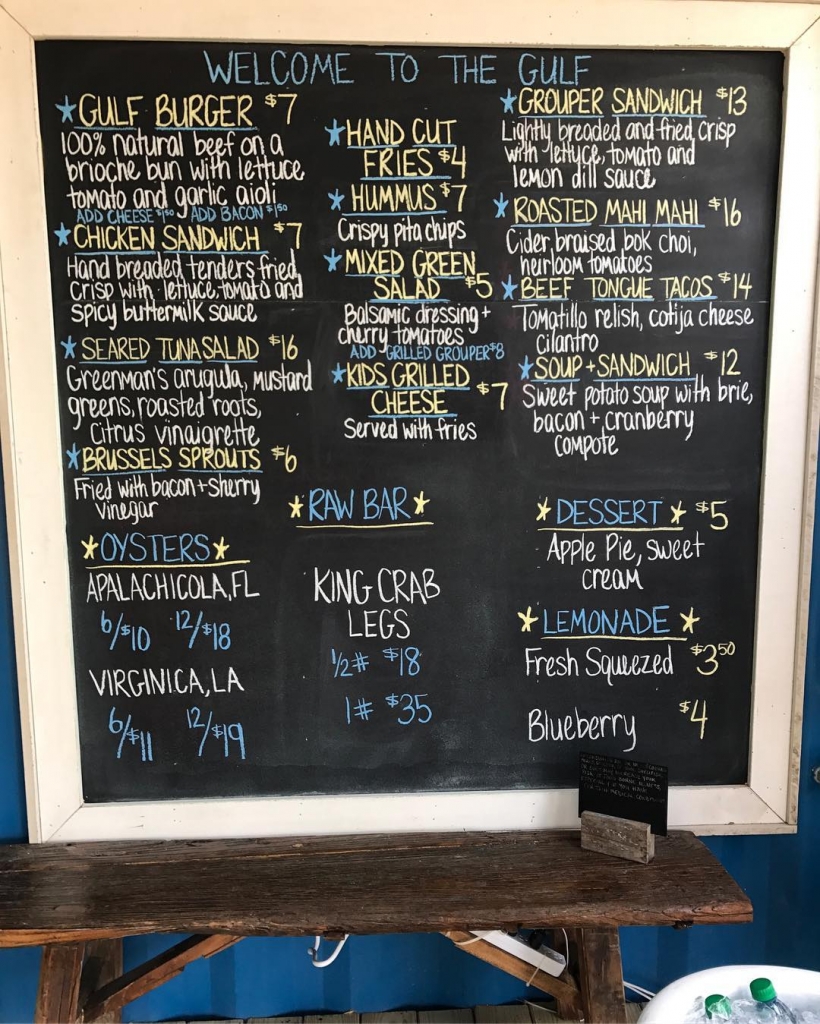 WELCOME TO THE GULF
★GULF BURGER $7
100% natural beef on a
brioche bun with lettuce,
tomato and garlic aioli
ADD CHEESE $1.50 ADD BACON $1.50
★CHICKEN SANDWICH $7
Hand breaded tenders fried,
crisp with lettuce, tomato and
spicy buttermilk sauce
★SEARED TUNA SALAD $16
Greenman's arugula, mustard
greens, roasted roots,
citrus vinaigrette
★BRUSSELS SPROUTS $6
Fried with bacon + sherry
vinegar
★OYSTERS★
APALACHICOLA, FL
6/$10 12/$18
VIRGINICA, LA
6/$11 12/$19
★HAND CUT
FRIES $4
★HUMMUS $7
Crispy pita chips
★MIXED GREEN
SALAD $5
Balsamic dressing +
cherry tomatoes
ADD GRILLED GROUPER $8
★KIDS GRILLED
CHEESE $7
Served with fries
★RAW BAR★
KING CRAB
LEGS
1/2# $18
1# $35
★GROUPER SANDWICH $13
Lightly breaded and fried, crisp
with lettuce, tomato and
lemon dill sauce
★ROASTED MAHI MAHI $16
Cider braised bok choi,
heirloom tomatoes
★BEEF TONGUE TACOS $14
Tomatillo relish, cotija cheese
cilantro
★SOUP + SANDWICH $12
Sweet potato soup with brie,
bacon + cranberry
compote
★DESSERT★ $5
Apple Pie, sweet
cream
★LEMONADE★
Fresh Squeezed $3.50
Blueberry $4